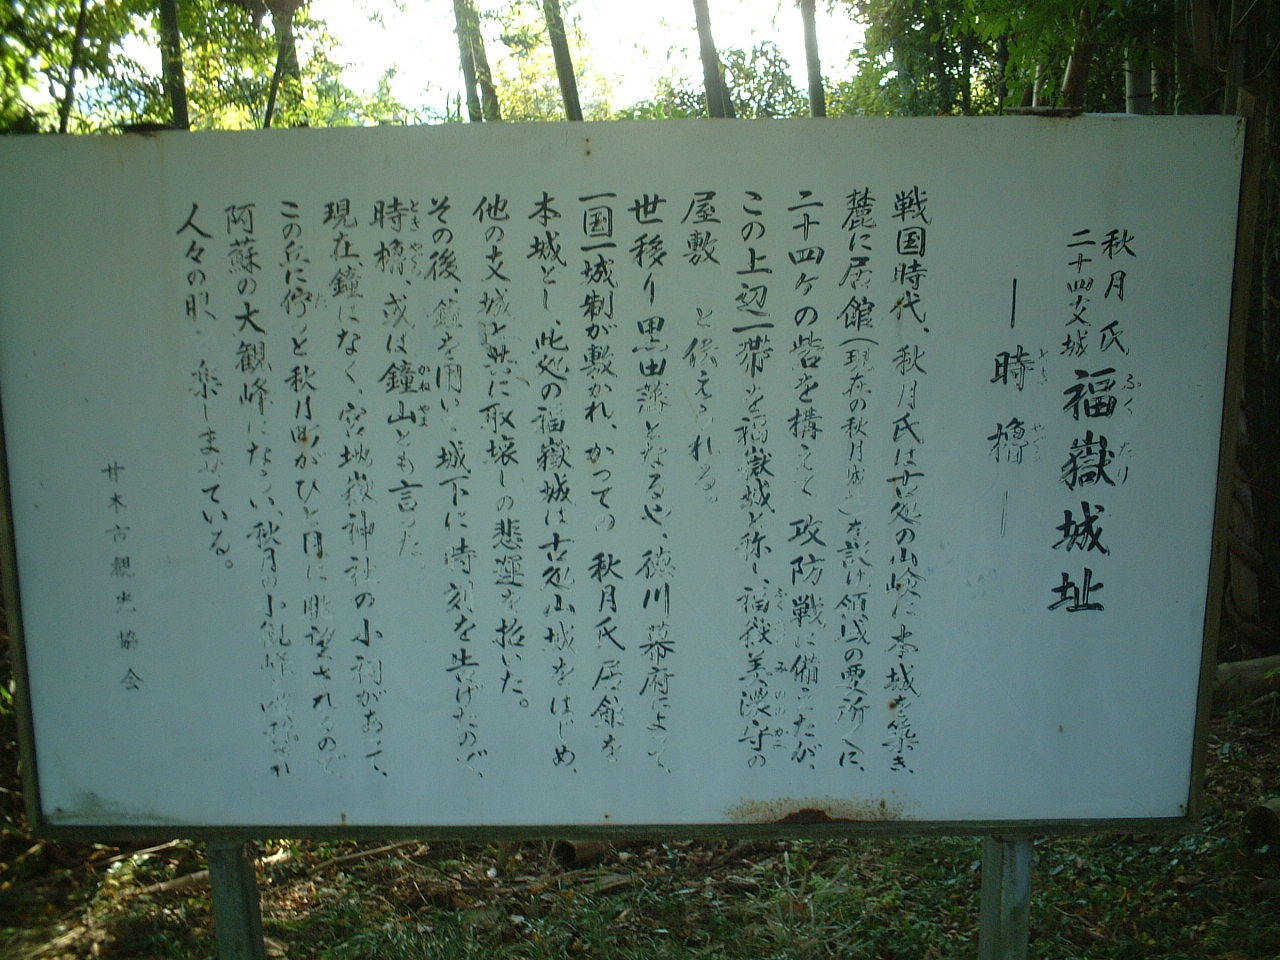 秋月氏
二十四支城
福嶽城址
ふく たけ
―時櫓―
とき やぐら
戦国時代、秋月氏は古処の山険に本城を築き、
麓に居館(現在の秋月城址)を設け領域の要所々に、
二十四ヶの砦を構えて 攻防戦に備えたが、
この上辺一帯を福嶽城と称し、福嶽美濃守の
ふくたけ みののかみ
屋敷 と伝えられる。
世移り黒田藩となるや、徳川幕府によって、
一国一城制が敷かれ、かつての 秋月氏居館を
本城とし、此処の福嶽城は古処山城をはじめ、
他の支城と共に取壊しの悲運を招いた。
その後、鐘を用い 城下に時刻を告げたので、
時櫓、或は鐘山とも言った。
ときやぐら かねやま
現在、鐘はなく、宮地嶽神社の小祠があって、
この丘に佇つと秋月町がひと目に眺望されるので
た
阿蘇の大観峰にならい、秋月の小観峰
人々の眼 楽しませている。
甘木市観光協会